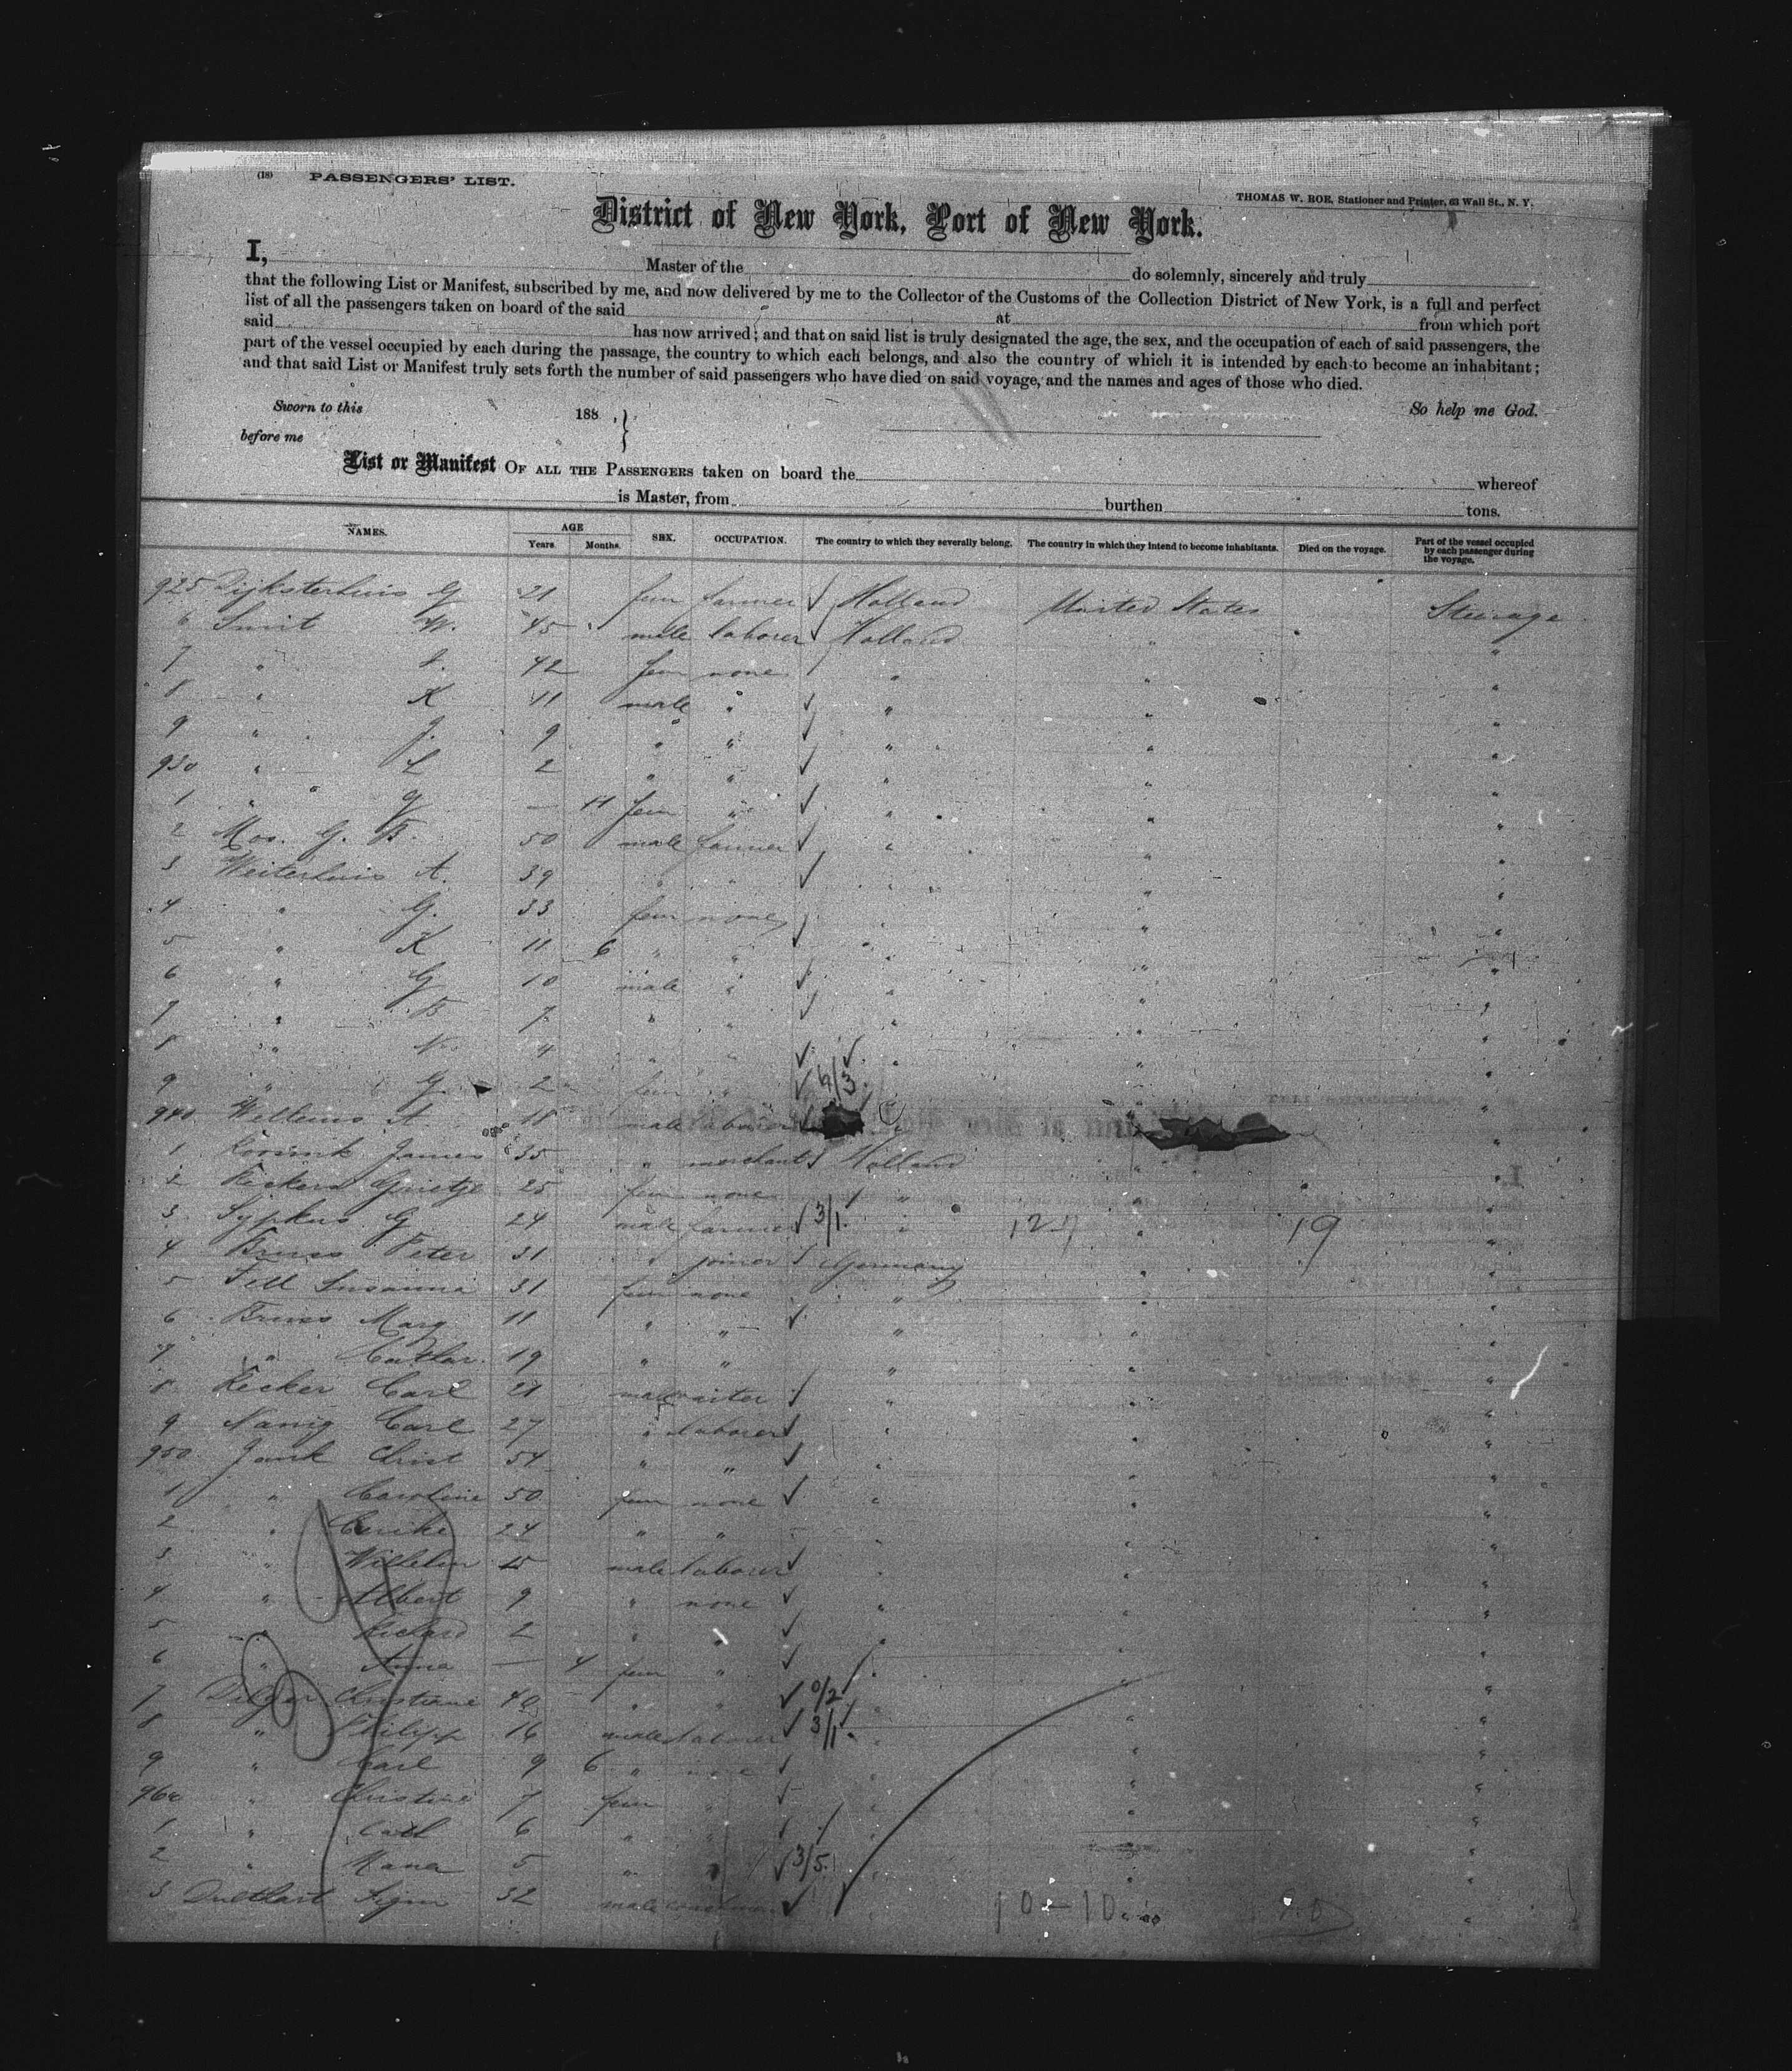 (18) PASSENGERS' LIST.
THOMAS W. ROE, Stationer and Printer, 63 Wall St., N. Y.
District of New York, Port of New York.
I, Master of the do solemnly, sincerely and truly
that the following List or Manifest, subscribed by me, and now delivered by me to the Collector of the Customs of the Collection District of New York, is a full and perfect
list of all the passengers taken on board of the said at from which port
said has now arrived; and that on said list is truly designated the age, the sex, and the occupation of each of said passengers, the
part of the vessel occupied by each during the passage, the country to which each belongs, and also the country of which it is intended by each to become an inhabitant;
and that said List or Manifest truly sets forth the number of said passengers who have died on said voyage, and the names and ages of those who died.
Sworn to this 188 , } So help me God.
before me
List or Manifest OF ALL THE PASSENGERS taken on board the whereof
is Master, from burthen tons.
NAMES. AGE Years. Months. SEX. OCCUPATION. The country to which they severally belong. The country in which they intend to become inhabitants. Died on the voyage. Part of the vessel occupied by each passenger during the voyage.
925 Dijksterhuis G 21 fem farmer Holland United States Steerage
6 Smit W. 45 male laborer Holland " "
7 " 42 fem none " " "
8 " K 11 male " " " "
9 " J. 9 " " " " "
930 " L 2 " " " " "
1 " G — 11 fem " " " "
2 Mos. G. B. 50 male farmer " " "
3 Weiterhuis A. 39 " " " " "
4 " G. 33 fem none " " "
5 " K 11 6 " " " " "
6 " G 10 male " " " "
7 " B 7 " " " " "
8 " N. 4 " " " " "
9 " G. 2 fem " " "
940 Willems A. 18 male laborer "
1 James 35 " merchant Holland " "
2 Grietje 25 fem none " " "
3 Sypkus G 24 male farmer 3/1. " 127 " 19 "
4 Bruss Peter 31 " joiner Germany " "
5 Fell Susanna 31 fem none " " "
6 Bruss Marg 11 " " " " "
7 " Cathar. 19 " " " " "
8 Kecker Carl 21 male waiter " " "
9 Nanig Carl 27 " laborer " " "
950 Jank Christ 54 " " " " "
1 " Caroline 50 fem none " " "
2 " 24 " " " "
3 " Wilhelm 15 male laborer " " "
4 " Albert 9 " none " " "
5 " Richard 2 " " " "
6 " Anna — 4 fem " " "
7 Christiane 40 " " 0/2 " "
8 " Philipp 16 male laborer 3/1. " " "
9 " Carl 9 6 " none " "
960 " Christine 7 fem " " "
1 " Cath 6 " " " "
2 " 5 " 3/5. " "
3 32 male "